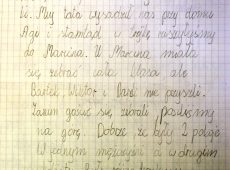 li. Mój tata wysadził nas przy domu
Agi i stamtąd w trójkę ruszyłyśmy
do Marcina. U Marcina miała
się zebrać cała klasa ale
Bartek, Wiktor i Daniel nie przyszli.
Zanim goście się zebrali poszliśmy
na górę. Dobrze że były 2 pokoje
W jednym mężczyźni a w drugim